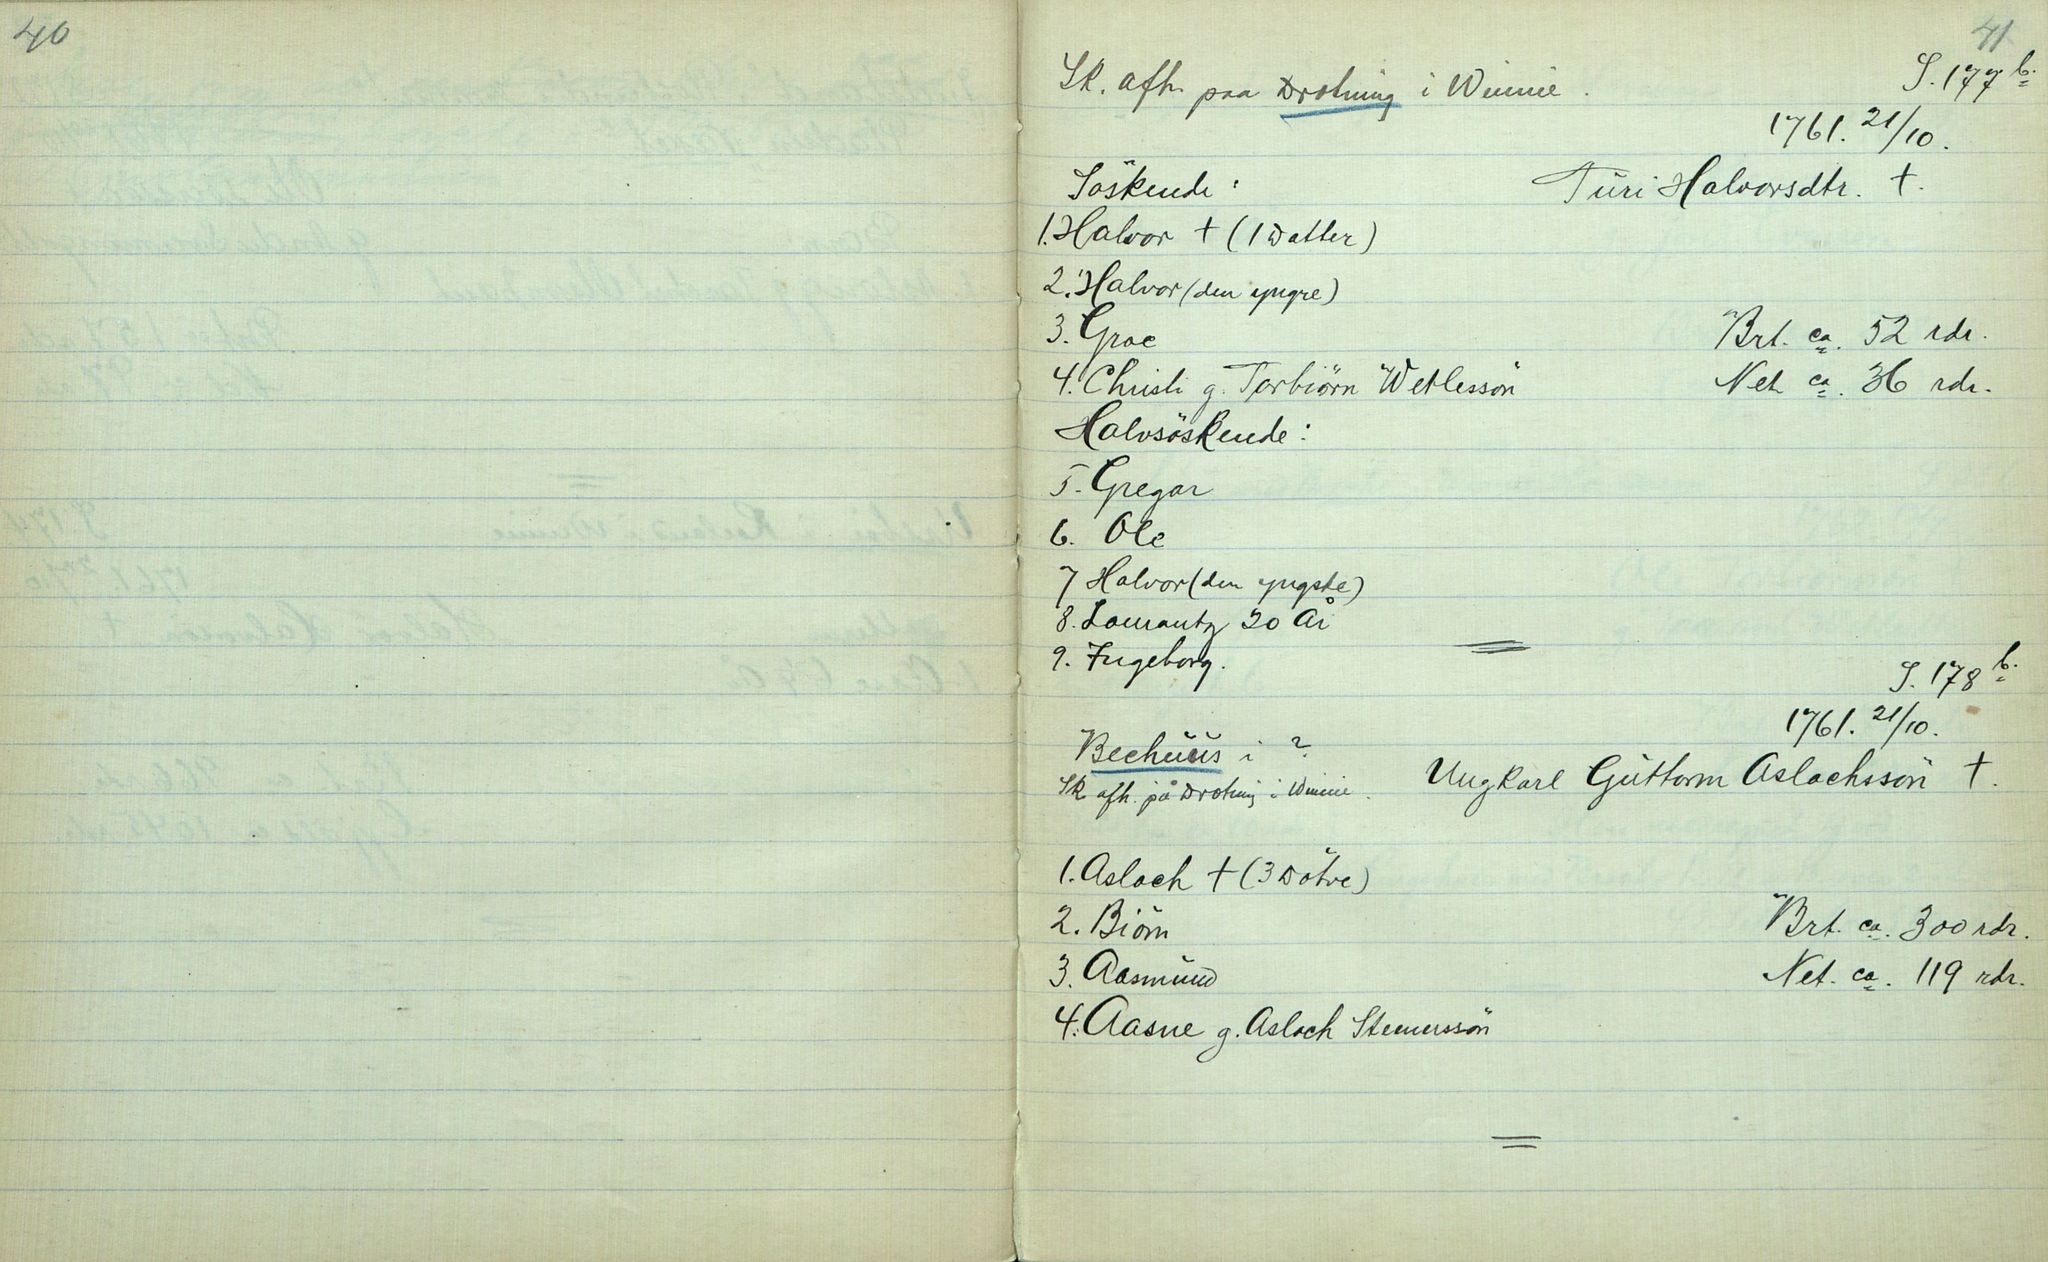 40
41
Sk. afh. paa Drotning i Winnie.
S. 177 b.
1761. 21/10.
Söskende:
Turi Halvorsdtr. †.
1. Halvor † (1 Datter)
2. Halvor (den yngre)
3. Groe
Brt. ca. 52 rdr.
4. Christi g. Torbiörn Wetlessön
Net. ca. 36 rdr.
Halvsöskende:
5. Gregar
6. Ole
7 Halvor (den yngste)
8. Lourantz 20 År
9. Ingeborg.
S. 178 b.
1761. 21/10.
Bechuus i ?
Sk. afh. på Drotning i Winnie.
Ungkarl Guttorm Aslachssön †.
1. Aslach † (3 Døtre)
2. Biörn
Brt. ca. 300 rdr.
3. Aasmund
Net. ca. 119 rdr.
4. Aasne g. Aslach